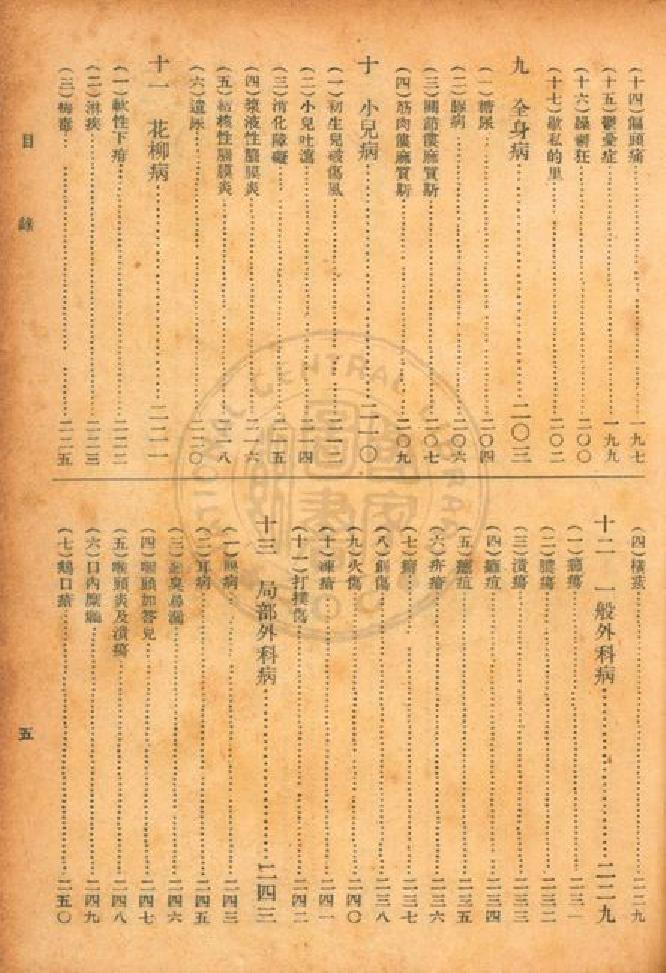 (十四)偏頭痛……一九七
(十五)鬱憂症……一九九
(十六)躁劇狂……二〇〇
(十七)歇私的里……二〇二
九 全身病……二〇三
(一)糖尿……二〇四
(二)脚病……二〇六
(三)關節僂麻質斯……二〇七
(四)筋肉僂麻質斯……二〇九
十 小兒病……二一〇
(一)初生兒破傷風
(二)小兒吐瀉
(三)消化障礙
(四)漿液性腦膜炎……二一六
(五)結核性腦膜炎……二一八
(六)遺尿……二二〇
十一 花柳病……二二一
(一)軟性下疳……二二二
(二)淋疾……二二三
(三)梅毒……二二五
(四)橫痃……二二九
十二 一般外科病……二二九
(一)癤瘍……二三一
(二)膿瘍……二三二
(三)潰瘍……二三三
(四)
(五)
(六)疥瘡……二三六
(七)……二三七
(八)創傷……二三八
(九)火傷……二四〇
(十)凍瘡……二四一
(十一)打撲傷……二四二
十三 局部外科病……二四三
(一)眼病……二四三
(二)耳病……二四五
(三)……二四六
(四)咽頭加答兒……二四七
(五)喉頭炎及潰瘍……二四八
(六)口內糜爛……二四九
(七)鵝口瘡……二五〇
目 錄
五